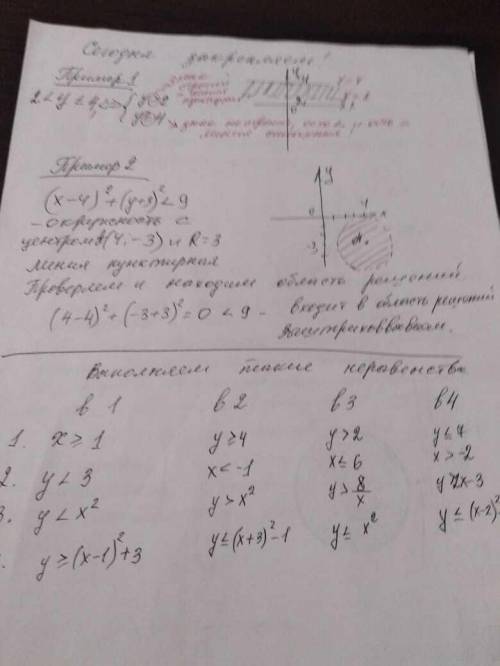 Сегодня закрепляем!
Пример 1
2 < y ≤ 4
y
Пример 2
(x-4)²+(y+3)²<9
- окружность с
центром (4,-3) и R=3
линия пунктирная
y
0 4 x
-3
Проверяем и находим область решений
(4-4)²+(-3+3)²=0<9 - входит в область решений
Заштриховываем.
Выполняем такие неравенства
в 1 в 2 в 3 в 4
1. x≥1 y≥4 y>2 y≤7
2. y<3 x<-1 x≤6 x>-2
3. y<x² y>x² y>8/x y 2x-3
y≥(x-1)²+3 y≤(x+3)²-1 y≤x² y≤(x-2)²